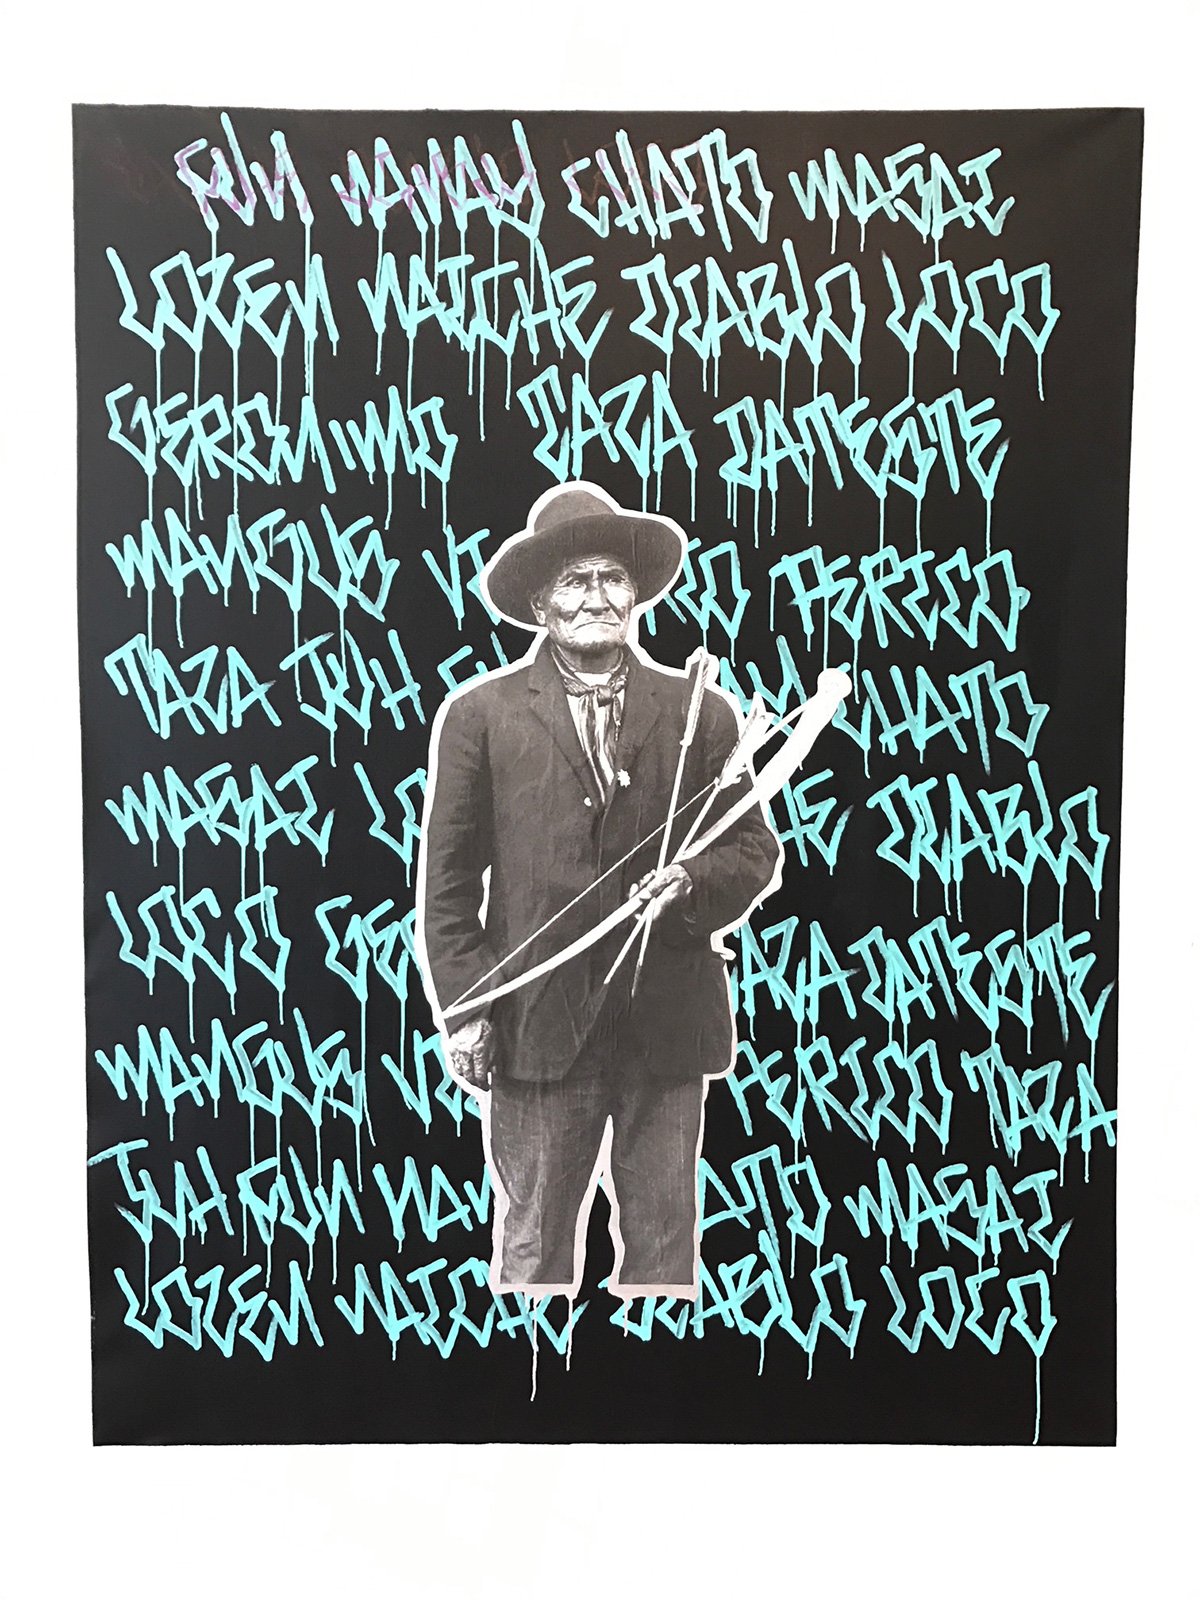 FUN NANAY CHATO MASAI
LOZEN NAICHE DIABLO LOCO
GERONIMO TAZA DATESTE
MANGUS PERICO
TAZA JUH CHATO
MASAI DIABLO
LOCO DATESTE
MANGUS PERICO TAZA
JUH FUN MASAI
LOZEN NAICHE DIABLO LOCO